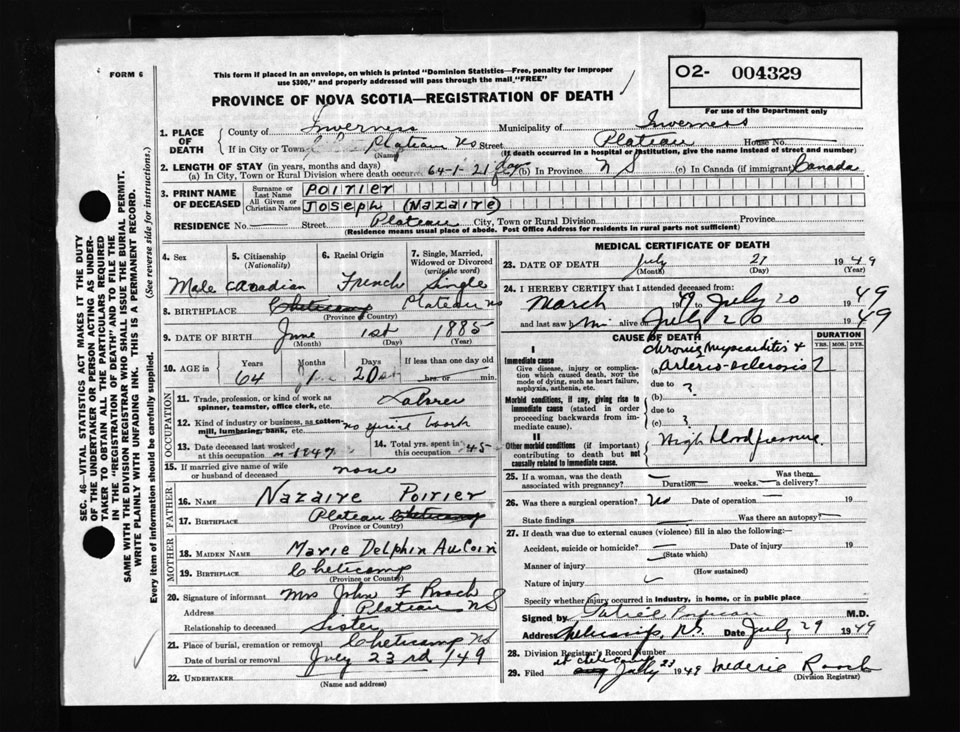 FORM 6
This form if placed in an envelope, on which is printed "Dominion Statistics—Free, penalty for improper
use $300," and properly addressed will pass through the mail "FREE"
PROVINCE OF NOVA SCOTIA—REGISTRATION OF DEATH
02- 004329
For use of the Department only
1. PLACE OF DEATH
County of Inverness Municipality of Inverness
If in City or Town Plateau NS Street Plateau House No.
(Name) (If death occurred in a hospital or institution, give the name instead of street and number)
2. LENGTH OF STAY (in years, months and days)
(a) In City, Town or Rural Division where death occurred 64-1-21 day (b) In Province NS (c) In Canada (if immigrant) Canada
3. PRINT NAME OF DECEASED
Surname or Last Name POIRIER
All Given or Christian Names JOSEPH (NAZAIRE)
RESIDENCE No. Street Plateau City, Town or Rural Division Province
(Residence means usual place of abode. Post Office Address for residents in rural parts not sufficient)
4. Sex
Male
5. Citizenship
(Nationality)
Canadian
6. Racial Origin
French
7. Single, Married,
Widowed or Divorced
(write the word)
Single
8. BIRTHPLACE Cheticamp Plateau NS
(Province or Country)
9. DATE OF BIRTH June 1st 1885
(Month) (Day) (Year)
10. AGE in Years Months Days If less than one day old
64 20 hrs. or min.
OCCUPATION
11. Trade, profession, or kind of work as
spinner, teamster, office clerk, etc. Laborer
12. Kind of industry or business, as cotton
mill, lumbering, bank, etc. no special work
13. Date deceased last worked
at this occupation 1947
14. Total yrs. spent in
this occupation 45
15. If married give name of wife
or husband of deceased none
FATHER
16. NAME Nazaire Poirier
17. BIRTHPLACE Plateau Cheticamp
(Province or Country)
MOTHER
18. MAIDEN NAME Marie Delphin AuCoin
19. BIRTHPLACE Cheticamp
(Province or Country)
20. Signature of informant Mrs John F Roach
Address Plateau NS
Relationship to deceased Sister
21. Place of burial, cremation or removal Cheticamp NS
Date of burial or removal July 23rd/49
22. UNDERTAKER
(Name and address)
MEDICAL CERTIFICATE OF DEATH
23. DATE OF DEATH July 21 1949
(Month) (Day) (Year)
24. I HEREBY CERTIFY that I attended deceased from:
March 1949 to July 20 1949
and last saw him alive on July 20 1949
CAUSE OF DEATH
DURATION
YRS. MOS. DYS.
I
Immediate cause
Give disease, injury or complication
which caused death, not the
mode of dying, such as heart failure,
asphyxia, asthenia, etc.
chronic myocarditis &
(a) arterio-sclerosis ?
due to ?
Morbid conditions, if any, giving rise to
immediate cause (stated in order
proceeding backwards from immediate
cause).
(b)
due to ?
(c)
II
Other morbid conditions (if important)
contributing to death but not
causally related to immediate cause.
High blood pressure
25. If a woman, was the death
associated with pregnancy? Duration weeks. Was there
a delivery?
26. Was there a surgical operation? no Date of operation 19
State findings Was there an autopsy?
27. If death was due to external causes (violence) fill in also the following:
Accident, suicide or homicide? Date of injury 19
(State which)
Manner of injury
(How sustained)
Nature of injury
Specify whether injury occurred in industry, in home, or in public place
Signed by M.D.
Address NS. Date July 29 1949
28. Division Registrar's Record Number
at Cheticamp
29. Filed July 23 1949 Mederic Roach
(Division Registrar)
SEC. 46—VITAL STATISTICS ACT MAKES IT THE DUTY
OF THE UNDERTAKER OR PERSON ACTING AS UNDERTAKER
TO OBTAIN ALL THE PARTICULARS REQUIRED
IN THE "REGISTRATION OF DEATH" AND TO FILE THE
SAME WITH THE DIVISION REGISTRAR WHO SHALL ISSUE THE BURIAL PERMIT.
WRITE PLAINLY WITH UNFADING INK. THIS IS A PERMANENT RECORD.
Every item of information should be carefully supplied. (See reverse side for instructions.)